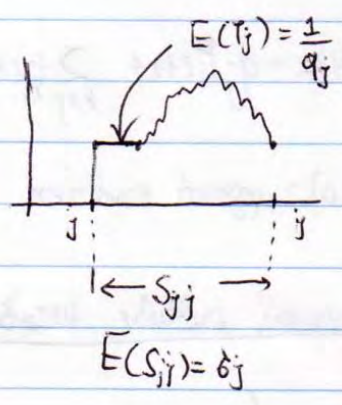 E(Tj) = 1/qj
j j
Sjj
E(Sjj) = δj